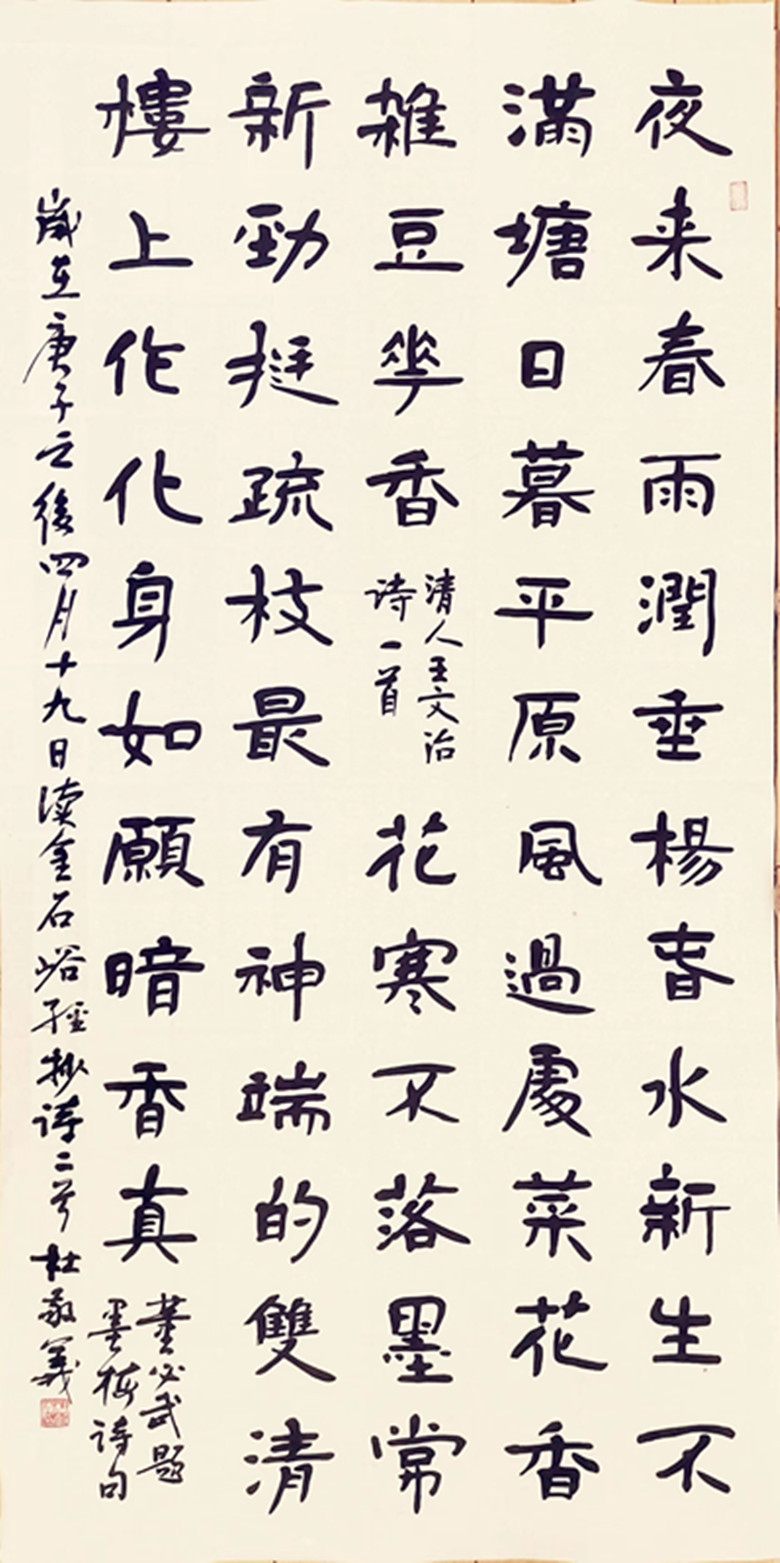 夜来春雨潤垂楊春水新生不
滿塘日暮平原風過處菜花香
雜豆華香
清人王文治
诗一首
花寒不落墨常
新勁挺疏枝最有神端的雙清
樓上作化身如願暗香真
董必武題
墨梅詩句
歲在庚子之後四月十九日读金石峪經抄诗二首杜敬義